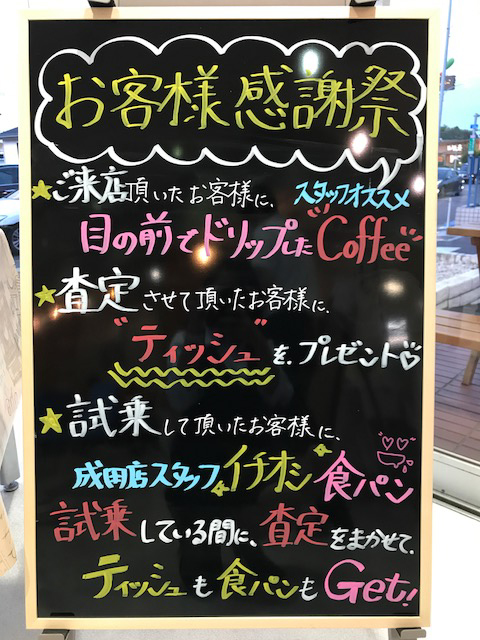 お客様感謝祭
★ご来店頂いたお客様に、スタッフオススメ
目の前でドリップした"Coffee"
★査定させて頂いたお客様に、
"ティッシュ"を、プレゼント♡
★試乗して頂いたお客様に、
成田店スタッフイチオシ食パン
試乗している間に、査定をまかせて、
ティッシュも食パンもGet!